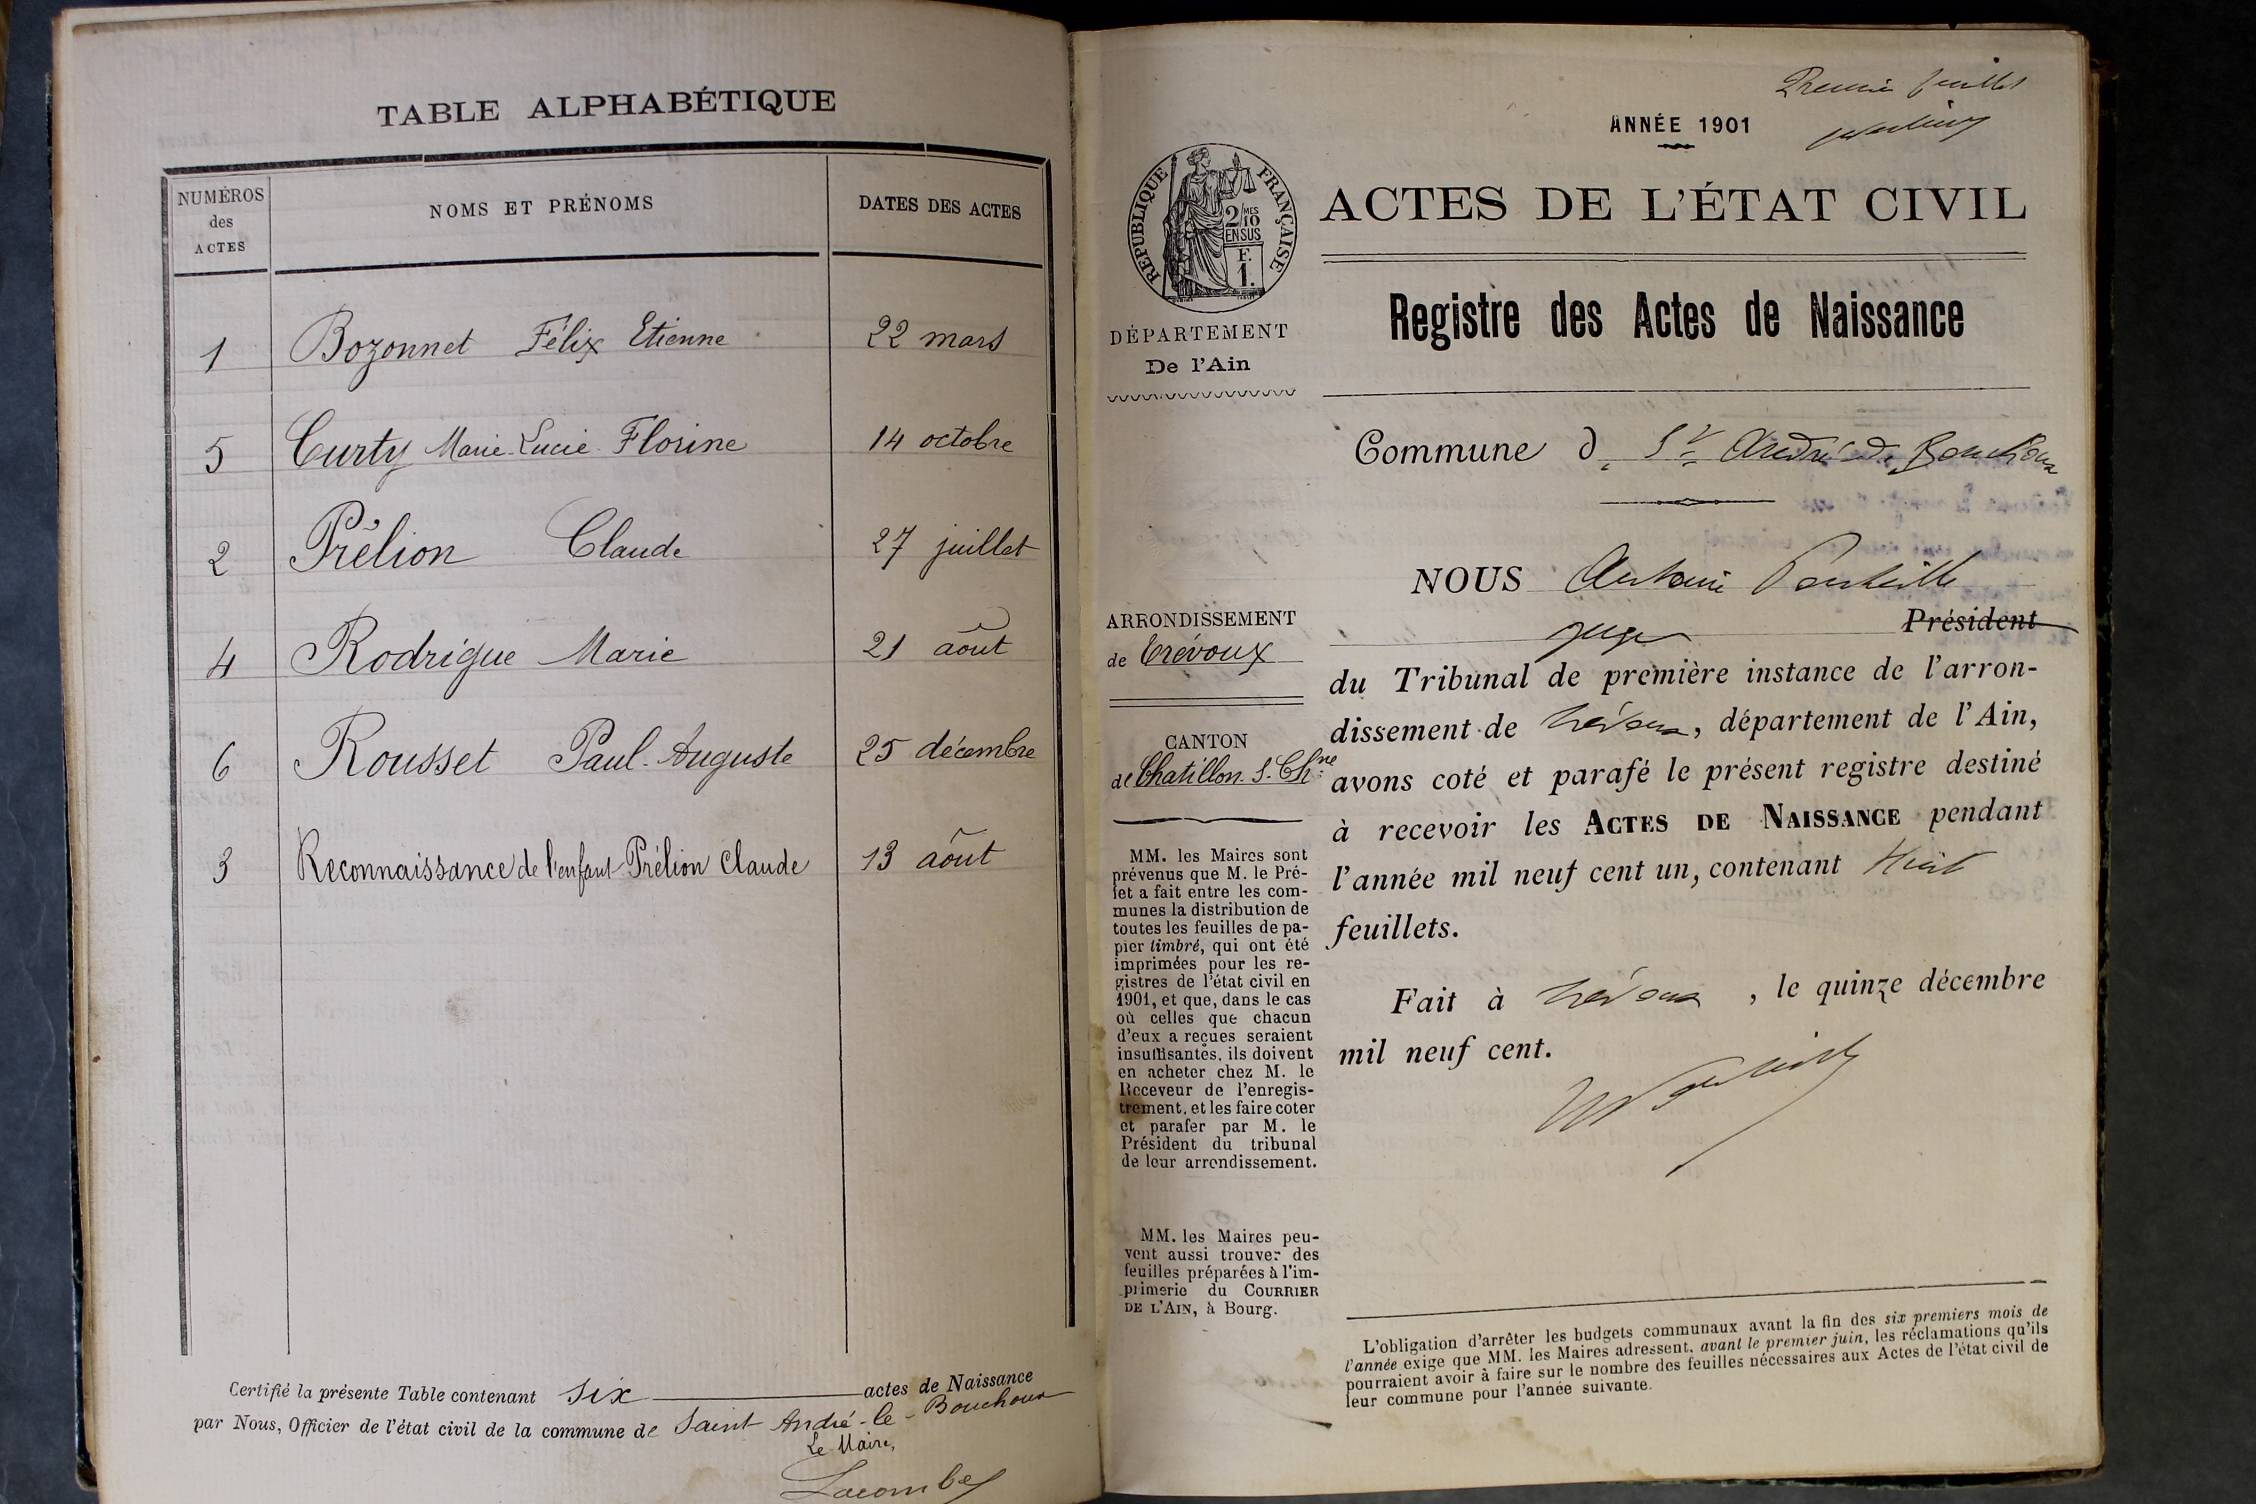 TABLE ALPHABÉTIQUE
NUMÉROS des ACTES
NOMS ET PRÉNOMS
DATES DES ACTES
1 Bozonnet Félix Etienne 22 mars
5 Curty Marie-Lucie Florine 14 octobre
2 Prélion Claude 27 juillet
4 Rodrigue Marie 21 août
6 Rousset Paul-Auguste 25 décembre
3 Reconnaissance de l'enfant Prélion Claude 13 août
Certifié la présente Table contenant six actes de Naissance
par Nous, Officier de l'état civil de la commune de Saint André-le-Bouchoux
Le Maire,
Lacombe
Premier feuillet
ANNÉE 1901
RÉPUBLIQUE FRANÇAISE
2/MES
10
EN SUS
F.
1.
ACTES DE L'ÉTAT CIVIL
Registre des Actes de Naissance
DÉPARTEMENT
De l'Ain
Commune de St André de Bouchoux
NOUS Antoine
juge Président
ARRONDISSEMENT
de Trévoux
CANTON
de Chatillon-s-Chne
du Tribunal de première instance de l'arron-
dissement de Trévoux, département de l'Ain,
avons coté et parafé le présent registre destiné
à recevoir les ACTES DE NAISSANCE pendant
l'année mil neuf cent un, contenant Huit
feuillets.
Fait à Trévoux, le quinze décembre
mil neuf cent.
MM. les Maires sont
prévenus que M. le Pré-
fet a fait entre les com-
munes la distribution de
toutes les feuilles de pa-
pier timbré, qui ont été
imprimées pour les re-
gistres de l'état civil en
1901, et que, dans le cas
où celles que chacun
d'eux a reçues seraient
insuffisantes, ils doivent
en acheter chez M. le
Receveur de l'enregis-
trement, et les faire coter
et parafer par M. le
Président du tribunal
de leur arrondissement.
MM. les Maires peu-
vent aussi trouver des
feuilles préparées à l'im-
primerie du COURRIER
DE L'AIN, à Bourg.
L'obligation d'arrêter les budgets communaux avant la fin des six premiers mois de
l'année exige que MM. les Maires adressent, avant le premier juin, les réclamations qu'ils
pourraient avoir à faire sur le nombre des feuilles nécessaires aux Actes de l'état civil de
leur commune pour l'année suivante.